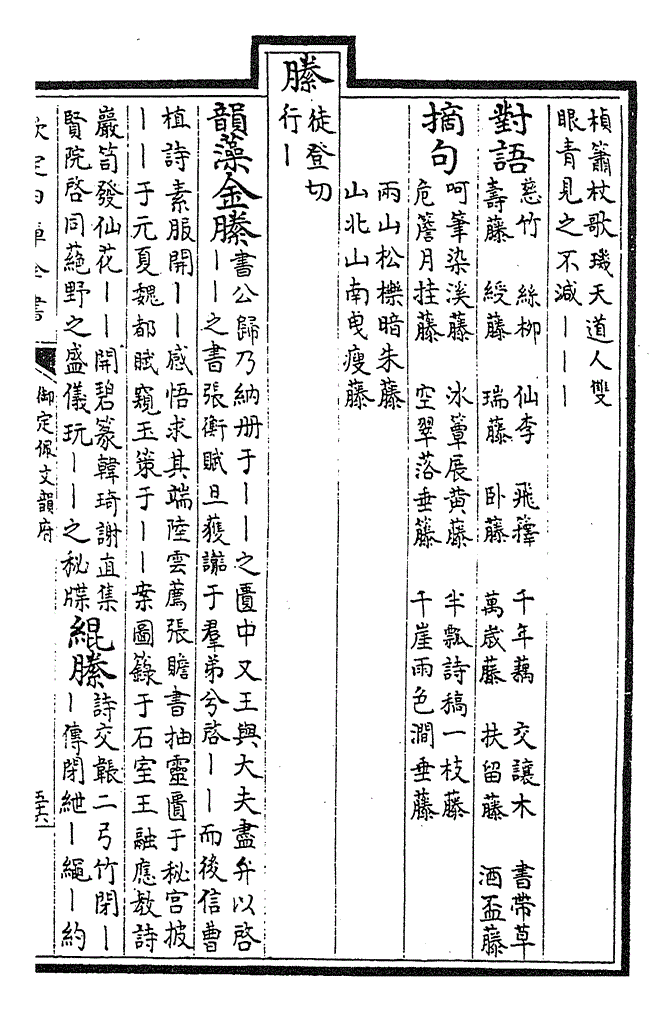 楨簫杖歌璣天道人雙
眼青見之不減丨丨丨
對語
慈竹　絲柳　仙李　飛蘀　千年藕　交讓木　書帶草
壽藤　綬藤　瑞藤　卧藤　萬歲藤　扶留藤　酒盃藤
摘句
呵筆染溪藤　冰簟展黄藤　半瓢詩稿一枝藤
危簷月挂藤　空翠落垂藤　千崖雨色澗垂藤
兩山松櫟暗朱藤
山北山南曳瘦藤
縢
徒登切
行丨
韻藻金縢
書公歸乃納册于丨丨之匱中又王與大夫盡弁以啓
丨丨之書張衡賦旦獲讟于羣弟兮啓丨丨而後信曹
植詩素服開丨丨感悟求其端陸雲薦張贍書抽靈匱于秘宫披
丨丨于元夏魏都賦窺玉策于丨丨案圖籙于石室王融應教詩
巖笥發仙花丨丨開碧篆韓琦謝直集
賢院啓同蕝野之盛儀玩丨丨之秘牒
緄縢
詩交韔二弓竹閉丨
丨傳閉紲丨繩丨約
欽定四庫全書
御定佩文韻府